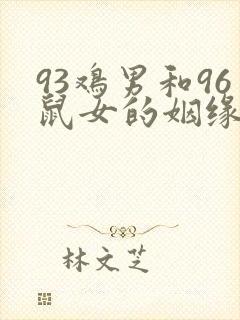 93鸡男和96
鼠女的姻缘
林文芝